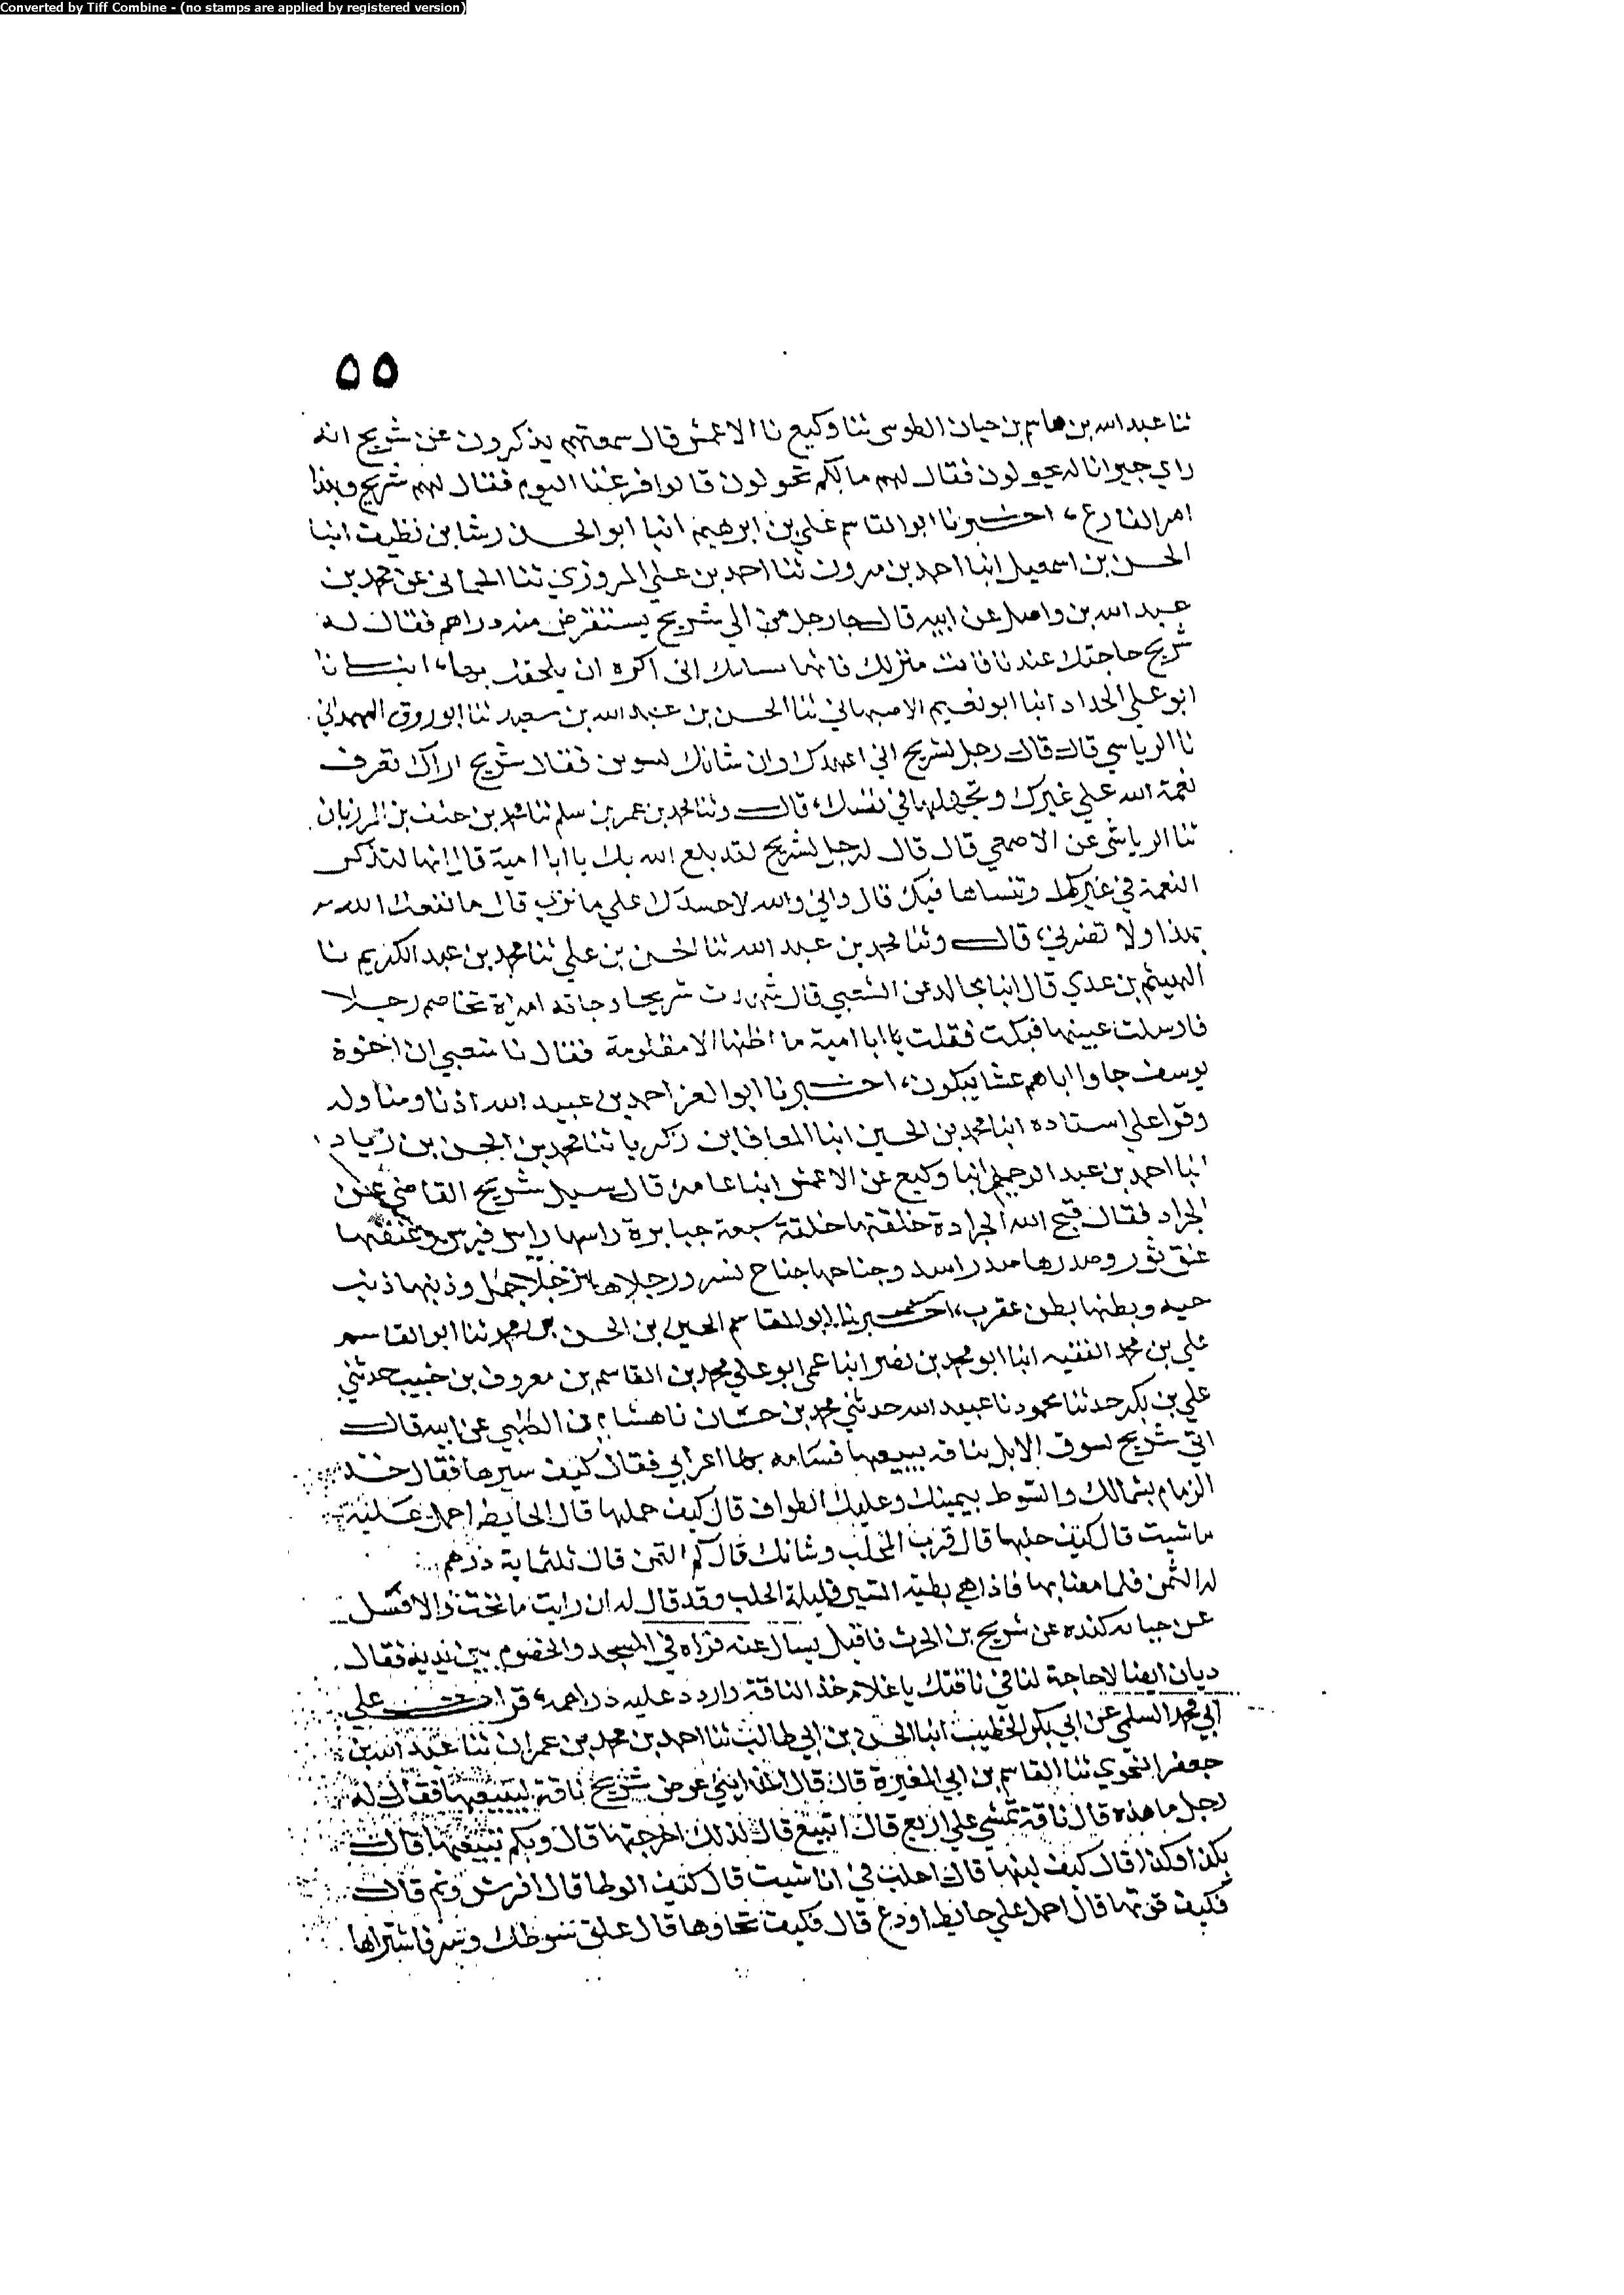 Converted by Tiff Combine - (no stamps are applied by registered version)
٥٥
ثنا عبد الله بن هاشم بن حيان الطوسي ثنا وكيع نا الاعمش قال سمعتهم يذكرون عن شريح انه
راي جيرانا له يجولون فقال لهم ما لكم تجولون قالوا فرغنا اليوم فقال لهم شريح وبهذا
امر الفارغ، اخبرنا ابو القاسم علي بن ابرهيم انبا ابو الحسن رشا بن نظيف انبا
الحسن بن اسمعيل انبا احمد بن مروان ثنا احمد بن علي المروزي ثنا الحماني عن محمد بن
عبد الله بن واصل عن ابيه قال جا رجل الي شريح يستقرض منه دراهم فقال له
شريح حاجتك عندنا فات منزلك فانها ستاتيك اني اكره ان يلحقك بها، انبانا
ابو علي الحداد انبا ابو نعيم الاصبهاني ثنا الحسن بن عبد الله بن سعيد ثنا ابو روق الهمداني
نا الرياسي قال قال رجل لشريح اني اعهدك وان شانك لشوين فقال شريح اراك تعرف
نعمة الله علي غيرك وتجهلها في نفسك، قال وثنا محمد بن عمر بن سلم ثنا محمد بن خلف بن المرزبان
ثنا الرياشي عن الاصمعي قال قال رجل لشريح لقد بلغ الله بك يا ابا امية قال انها لتذكر
النعمة في غيرك وتنساها فيك قال واني والله لاحسدك علي ما نري قال ما نفعك الله
بهذا ولا تضرني، قال وثنا محمد بن عبد الله ثنا الحسن بن علي ثنا محمد بن عبد الكريم نا
الهيثم بن عدي قال انبا مجالد عن الشعبي قال شهدت شريحا وجاته امراة تخاصم رجلا
فارسلت عينيها فبكت فقلت يا ابا امية ما اظنها الا مظلومة فقال يا شعبي ان اخوة
يوسف جاوا اباهم عشا يبكون، اخبرنا ابو العز احمد بن عبيد الله اذنا ومناوله
وقرا علي استاده انبا محمد بن الحسين انبا المعافا بن زكريا ثنا محمد بن الحسن بن زياد
انبا احمد بن عبد الرحيم انبا وكيع عن الاعمش انبا عامر قال سيل شريح القاضي عن
الجراد فقال قبح الله الجرادة خلقتها خلقة سبعة جبابرة راسها راس فرس وعنقها
عنق ثور وصدرها صدر اسد وجناحها جناح نسر ورجلاها رجلا جمل وذنبها ذنب
حيه وبطنها بطن عقرب، اخبرنا ابو القاسم الحسين بن الحسن بن محمد ثنا ابو القاسم
علي بن محمد الفقيه انبا ابو محمد بن نصر انبا عمي ابو علي محمد بن القاسم بن معروف بن حبيب حدثني
علي بن بكر حدثنا محمود نا عبيد الله حدثني محمد بن حسان نا هشام بن الكلبي عن ابيه قال
اتي شريح لسوق الابل بناقه يبيعها فسامه بها اعرابي فقال كيف سيرها فقال خذ
الزمام بشمالك والسوط بيمينك وعليك الطواف قال كيف حملها قال الحايط احمل عليه
ما شيت قال كيف حلبها قال قرب المحلب وشانك قال كم الثمن قال ثلثماية درهم
له الثمن فلما مضا بها فاذا هي بطية السير قليلة الحلب وقد قال له ان رايت ما تحب والا فسل
عن جبانه كنده عن شريح بن الحرث فاقبل يسال عنه فراه في المسجد والخصوم بين يديه فقال
ديان ايضا لا حاجة لنا في ناقتك يا غلام خذ الناقة واردد عليه دراهمه، قرات علي
ابي محمد السلمي عن ابي بكر الخطيب انبا الحسن بن ابي طالب ثنا احمد بن محمد بن عمران ثنا عبد الله بن
جعفر النحوي ثنا القاسم بن ابي المغيرة قال قال المدايني عرض شريح ناقة ليبيعها فقال له
رجل ما هذه قال ناقة تمشي علي اربع قال اتبيع قال لذلك اخرجتها قال وبكم تبيعها قال
بكذا وكذا قال كيف لبنها قال احلب في اي انا شيت قال كيف الوطا قال افرش ونم قال
فكيف قوتها قال احمل علي حايط او دع قال فكيف نجاوها قال علق سوطك وسر فاشتراها